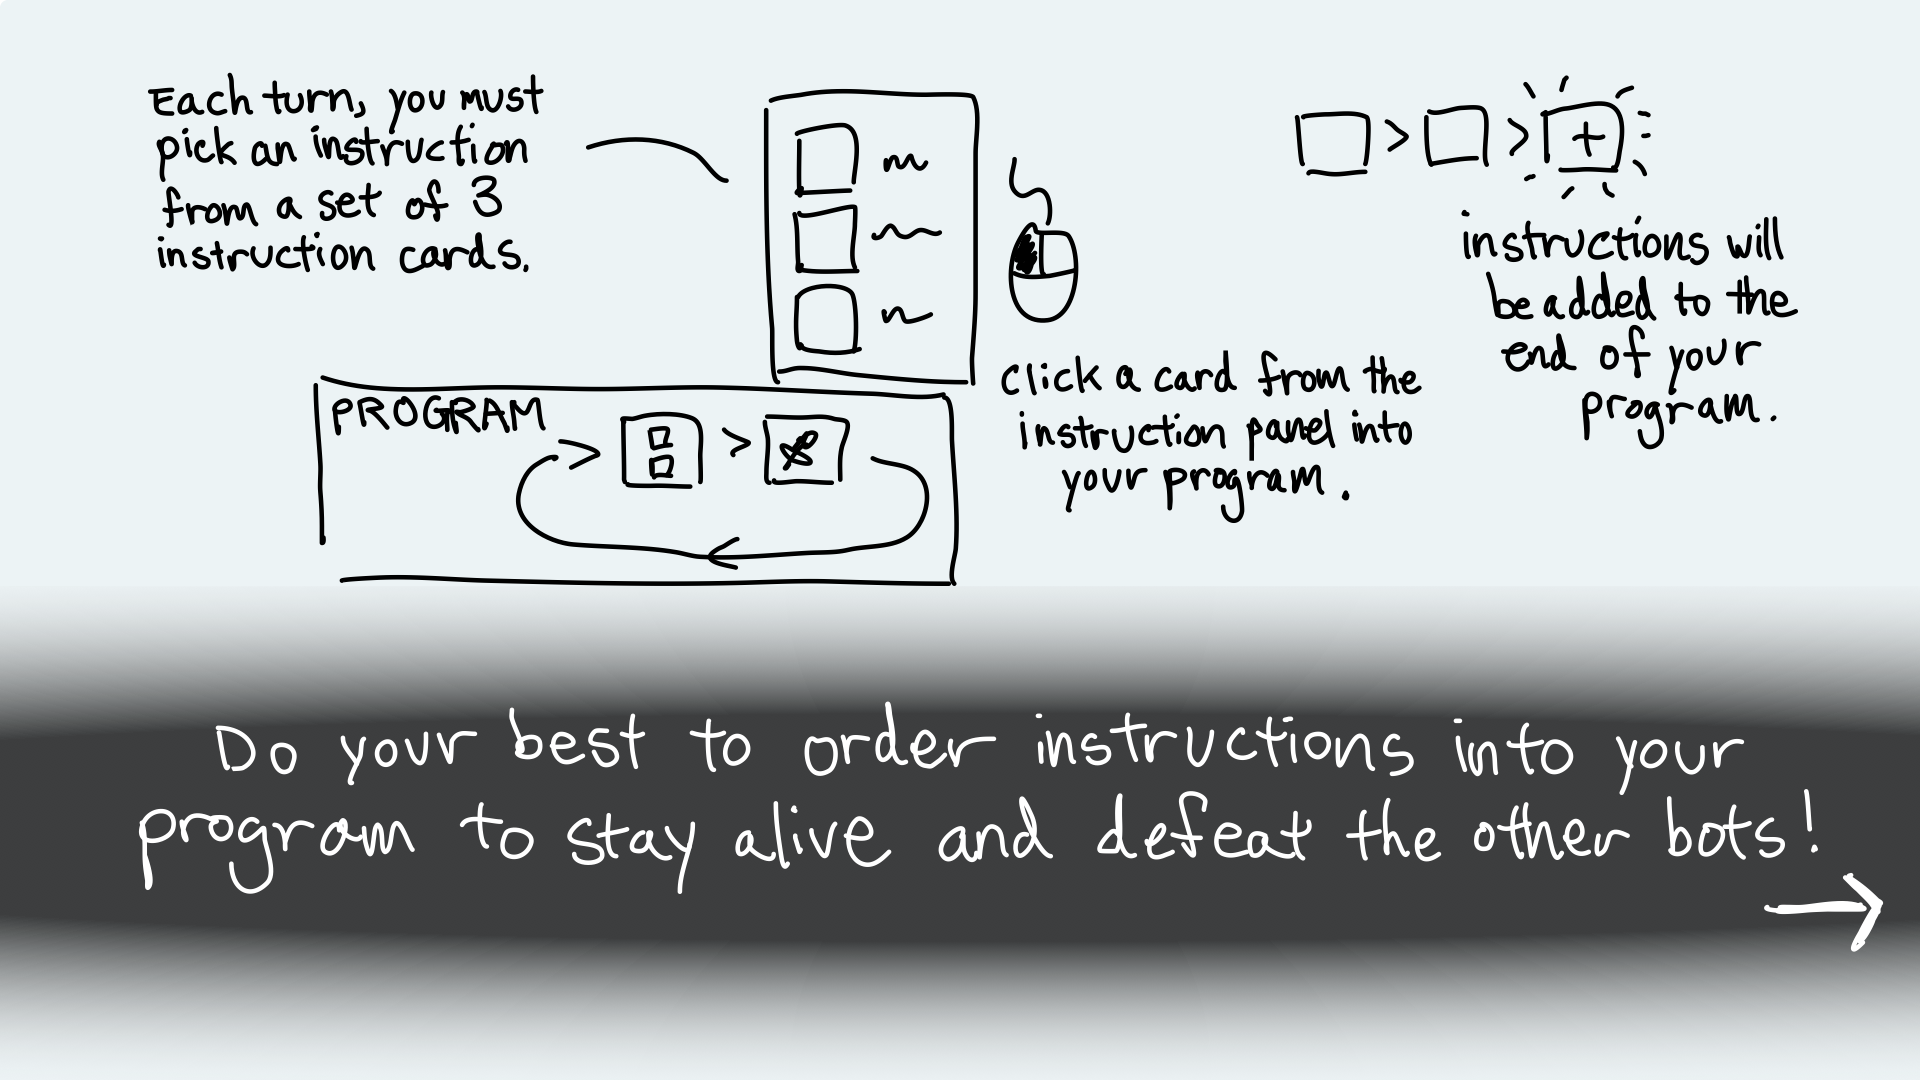 Each turn, you must
pick an instruction
from a set of 3
instruction cards.
PROGRAM
click a card from the
instruction panel into
your program.
instructions will
be added to the
end of your
program.
Do your best to order instructions into your
program to stay alive and defeat the other bots!